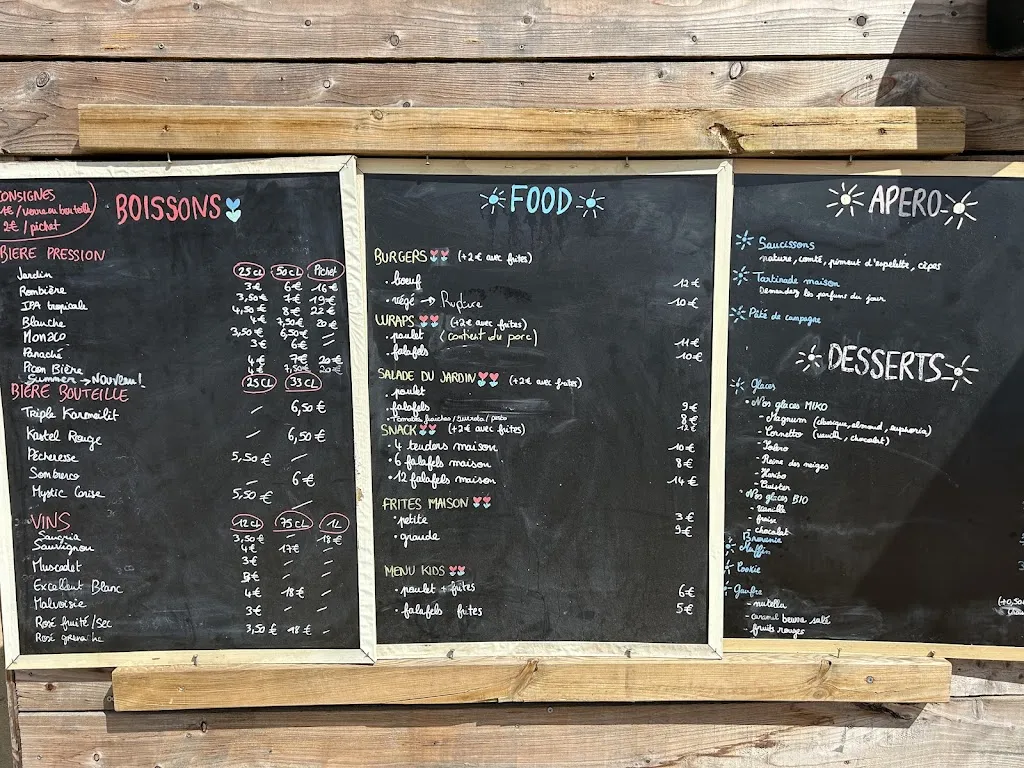 CONSIGNES
1€ / verre ou bouteille
2€ / pichet
BOISSONS
BIERE PRESSION
25 CL 50 CL Pichet
Jardin 3€ 6€ 16€
Rombière 3,50€ 7€ 19€
IPA tropicale 4,50€ 8€ 22€
Blanche 4€ 7,50€ 20€
Monaco 3,50€ 6,50€ /
Panaché 3€ 6€ /
Picon Bière 4€ 7€ 20€
Summer → NOUVEAU! 4€ 7,50€ 20€
BIÈRE BOUTEILLE
25 CL 33 CL
Triple Karmeliet / 6,50€
Kastel Rouge / 6,50€
Pêcheresse 5,50€ /
Sombrero / 6€
Mystic Cerise 5,50€ /
VINS
12 CL 75 CL 1L
Sangria 3,50€ / 18€
Sauvignon 4€ 17€ /
Muscadet 3€ / /
Excellent Blanc 4€ 18€ /
Malvoisie 3€ / /
Rosé fruité/sec 3,50€ 18€ /
Rosé
FOOD
BURGERS (+2€ avec frites)
• boeuf 12€
• végé → Rupture 10€
WRAPS (+2€ avec frites)
• poulet (contient du porc) 11€
• falafels 10€
SALADE DU JARDIN (+2€ avec frites)
• poulet 9€
• falafels 8€
• Tomates fraîches / burrata / pesto
SNACK (+2€ avec frites)
• 4 tenders maison 10€
• 6 falafels maison 8€
• 12 falafels maison 14€
FRITES MAISON
• petite 3€
• grande
MENU KIDS
• poulet + frites 6€
• falafels frites 5€
APERO
Saucissons
nature, comté, piment d'espelette, cèpes
Tartinade maison
Demandez les parfums du jour
Pâté de campagne
DESSERTS
Glaces
• Nos glaces MIKO
- Magnum (classique, almond, euphoria)
- Cornetto (vanille, chocolat)
- Solero
- Reine des neiges
- Haribo
- Twister
• Nos glaces BIO
- Vanille
- fraise
- chocolat
Brownie
Muffin
Cookie
Gaufre
- nutella
- caramel beurre salé
- fruits rouges
(+0,50